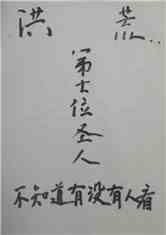 洪荒..
第七位圣人
不知道有没有人看